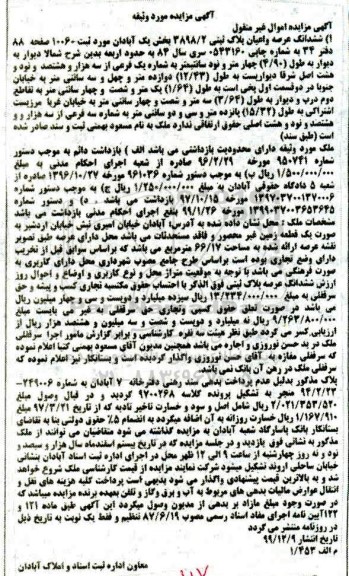 آگهی مزایده مورد وثیقه
آگهی مزایده اموال غیر منقول
۱) ششدانگ عرصه واعیان پلاک ثبتی ۳۸۹۸/۲ بخش یک آبادان مورد ثبت ۱۰۰۶۰ صفحه ۸۸
دفتر ۳۴ به شماره چاپی ۰۵۳۳۱۶۰ سری سال ۸۳ به حدود اربعه بدین شرح شمالا دیوار به
دیوار به طول (۴/۹۰) چهار متر و نود سانتیمتر به شماره یک فرعی از سه هزار و هشتصد و نود و
هشت اصل شرقا دیواریست به طول (۱۲/۳۳) دوازده متر و چهل و سه سانتی متر به خیابان
جنوبا در دوقسمت اول پخی است به طول (۱/۶۴) یک متر و شصت و چهار سانتی متر به تقاطع
دوم درب و دیوار به طول (۳/۶۴) سه متر و شصت و چهار سانتی متر به خیابان غربا مرزیست
اشتراکی به طول (۱۵/۳۲) پانزده متر و سی و دو سانتی متر به شماره سه فرعی از سه هزار و
هشتصد و نود و هشت اصلی حقوق ارتفاقی ندارد ملک به نام مسعود بهمنی ثبت و سند صادر شده
است (طبق سند)
ملک مورد وثیقه دارای محدودیت بازداشتی می باشد الف ) بازداشت دائم به موجب دستور
شماره ۹۵۰۷۴۱ مورخه ۹۶/۲/۲۹ صادره از شعبه اجرای احکام مدنی به مبلغ
۱/۵۰۰/۰۰۰/۰۰۰ ریال ب) به موجب دستور شماره ۹۶۱۰۳۶ مورخه ۱۳۹۶/۱۰/۲۷ صادره از
شعبه ۵ دادگاه حقوقی آبادان به مبلغ ۱/۲۵۰/۰۰۰/۰۰۰ ریال ج) به موجب دستور شماره
۱۳۹۷۰۳۷۰۰۱۳۷۰۰۶ مورخه ۹۷/۱۰/۱۵ بازداشت می باشد . د) و دستور شماره
۱۳۹۹۰۳۷۰۰۳۶۵۳۶۴۵ مورخه ۹۹/۱/۲۶ بنفع اجرای احکام مدنی بازداشت می باشد
مشخصات ملک : محل نشان داده شده به آدرس: آبادان خیابان امیری نبش خیابان اردشیر به
صورت یک قطعه زمین غیر محصور و فاقد مستحدثات می باشد محل دارای عرصه طبق تصویر
نقشه عرصه ارائه شده به مساحت ۶۶/۱۷ مترمربع می باشد که براساس سوابق قبل از تخریب
دارای وضع تجاری بوده است براساس طرح جامع مصوب شهرداری محل دارای کاربری به
صورت فرهنگی می باشد با توجه به موقعیت متراژ محل و نوع کاربری و اوضاع و احوال روز
ارزش ششدانگ عرصه پلاک ثبتی فوق الذکر با احتساب حقوق مکتسبه تجاری کسب و پیشه و حق
سرقفلی به مبلغ ۱۳/۲۳۴/۰۰۰/۰۰۰ ریال سیزده میلیارد و دویست و سی و چهار میلیون ریال
می باشد در صورت تعلق حقوق کسبی وتجاری حق سرقفلی به غیر می بایست مبلغ
۹/۲۶۳/۸۰۰/۰۰۰ ریال نه میلیارد و دویست و شصت و سه میلیون و هشتصد هزار ریال از
ارزیابی کسر می گردد طبق نظر هیئت سه نفره کارشناسی و برابر گزارش مامور اجرا سرقفلی
ملک در ید حسن نوروزی و اجاره می باشد همچنین مدیون آقای مسعود بهمنی کتبا اعلام نموده
که سرقفلی مغازه به آقای حسن نوروزی واگذار گردیده است و بستانکار نیز اعلام نموده که
سرقفلی ملک در رهن آن بانک نمی باشد
پلاک مذکور بدلیل عدم پرداخت بدهی سند رهنی دفترخانه ۷ آبادان به شماره ۲۴۹۰۰۶-
۹۴/۲/۲۳ منجر به تشکیل پرونده کلاسه ۹۷۰۰۲۶۸ گردید و در قبال وصول مبلغ
۲/۰۲۱/۳۵۳/۵۲۰ ریال شامل اصل و سود و خسارت تاخیر تادیه که از تاریخ ۹۷/۳/۲۱ مبلغ
۱/۱۶۷/۹۱۰ ریال خسارت روزانه به آن اضافه میگردد به انضمام ۵٪ حقوق دولتی بنا به تقاضای
بستانکار بانک پاسارگاد شعبه آبادان به مزایده گذاشته می شود متقاضیان می توانند از ملک
مذکور به نشانی فوق بازدید و در جلسه مزایده که در تاریخ بیستم اسفندماه سال هزار و سیصد و
نود و نه روز چهارشنبه از ساعت ۹ الی ۱۲ ظهر محل در اجرای اداره ثبت اسناد آبادان بنشانی
خیابان ساحلی اروند تشکیل میشود شرکت نمایند مزایده از قیمت کارشناسی ملک شروع خواهد
شد و به بالاترین قیمت پیشنهادی واگذار می شود بدیهی است پرداخت کلیه هزینه های نقل و
انتقال عوارض مالیات بدهی های مربوط به آب و برق وگاز و تلفن بعهده برنده مزایده میباشد که
در صورت وجود مبلغ مازاد بر بدهی از مدیون وصول میگردد این آگهی طبق ماده ۱۲۱ و
۱۲۲آیین نامه اجرای مفاد اسناد رسمی مصوب ۸۷/۶/۱۹ تنظیم و فقط یک نوبت به تاریخ ذیل
در روزنامه منتشر می گردد
تاریخ انتشار ۹۹/۱۲/۹
م الف ۱/۴۵۳
معاون اداره ثبت اسناد و املاک آبادان